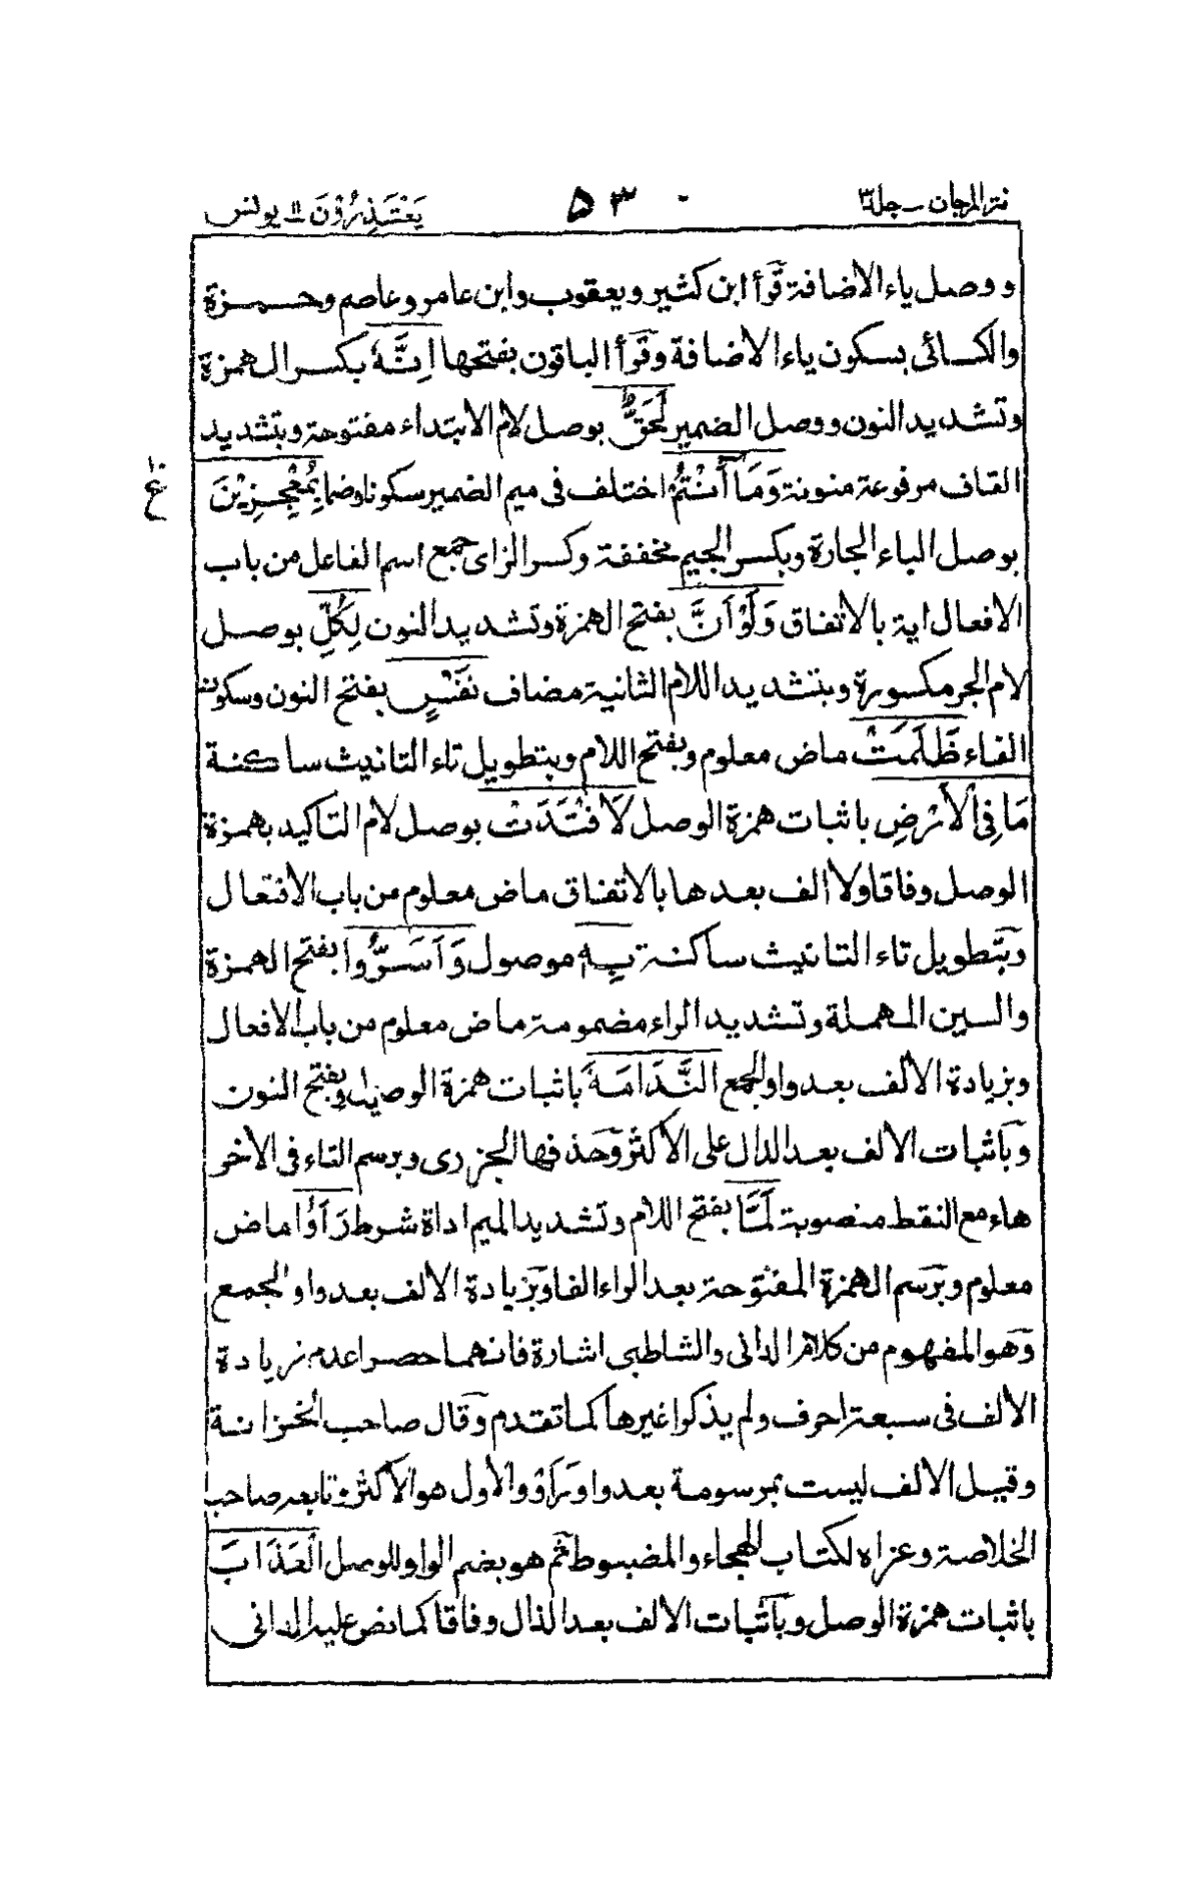 نثر المرجان ــ جلد ۳
۵۳
يَعْتَذِرُوْنَ ۱۱ يونس
و وصل ياء الاضافة قرأ ابن كثير و يعقوب وابن عامر و عاصم وحمزة
والكسائى بسكون ياء الاضافة وقرأ الباقون بفتحها اِنَّهٗ بكسر الهمزة
وتشديد النون ووصل الضمير لَحَقٌّ ط بوصل لام الابتداء مفتوحة وبتشديد
القاف مرفوعة منونة وَمَآ اَنْتُمْ اختلف فى ميم الضمير سكونا وضما بِمُعْجِزِيْنَ
ع ۱۰
بوصل الباء الجارة وبكسر الجيم مخففة وكسر الزاى جمع اسم الفاعل من باب
الافعال اية بالاتفاق وَلَوْ اَنَّ بفتح الهمزة وتشديد النون لِكُلِّ بوصل
لام الجر مكسورة وبتشديد اللام الثانية مضاف نَفْسٍ بفتح النون وسكون
الفاء ظَلَمَتْ ماض معلوم وبفتح اللام وبتطويل تاء التانيث ساكنة
مَا فِى الْاَرْضِ باثبات همزة الوصل لَافْتَدَتْ بوصل لام التاكيد بهمزة
الوصل وفاقا ولا الف بعدها بالاتفاق ماض معلوم من باب الافتعال
وبتطويل تاء التانيث ساكنة بِهٖ موصول وَاَسَرُّوا بفتح الهمزة
والسين المهملة وتشديد الراء مضمومة ماض معلوم من باب الافعال
وبزيادة الالف بعد واو الجمع النَّدَامَةَ باثبات همزة الوصل وبفتح النون
وباثبات الالف بعد الدال على الاكثر وحذفها الجزرى وبرسم التاء فى الاخر
هاء مع النقط منصوبة لَمَّا بفتح اللام وتشديد الميم اداة شرط رَاَوُا ماض
معلوم وبرسم الهمزة المفتوحة بعد الراء الفا وبزيادة الالف بعد واو الجمع
وهو المفهوم من كلام الدانى والشاطبى اشارة فانهما حصرا عدم زيادة
الالف فى سبعة احرف ولم يذكرا غيرها كما تقدم وقال صاحب الخزانة
وقيل الالف ليست بمرسومة بعد واو رَاَوْ والاول هو الاكثر وتابعه صاحب
الخلاصة وعزاه لكتاب الهجاء والمضبوط ثم هو بضم الواو للوصل الْعَذَابَ
باثبات همزة الوصل وباثبات الالف بعد الذال وفاقا كما نص عليه الدانى